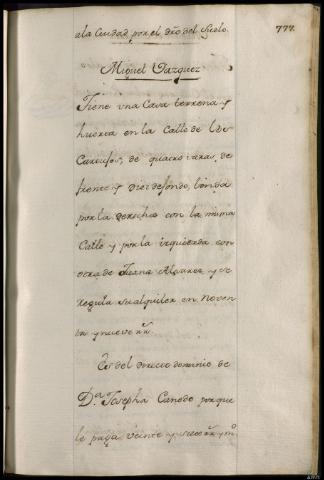 777.
ala Ciudad por el dro del Suelo.
Miguel Vazquez
Tiene una Casa terrena y
huerta en la Calle de los
Carrusos, de quatro varas de
frente y diez de fondo, linda
por la derecha con la misma
Calle y por la izquierda con
otra de Juana Alvarez y se
regula su alquiler en noven
ta y nueve rr.
Es del directo dominio de
Da. Josepha Canedo por que
le paga veinte y siete rr. y ms.